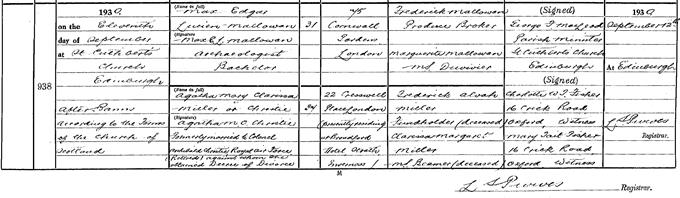 1930
on the Eleventh
day of September
at St Cuthbert's
Church
Edinburgh
After Banns
according to the Forms
of the Church of
Scotland
938
(Name in full)
Max Edgar
Lucien Mallowan
(Signature)
Max E. L. Mallowan
Archaeologist
Bachelor
(Name in full)
Agatha Mary Clarissa
Miller or Christie
(Signature)
Agatha M. C. Christie
Formerly married to Colonel
Archibald Christie, Royal Air Force
(Retired) against whom she
obtained Decree of Divorce
31
34
Cornwall
Gardens
London
22 Cresswell
Place London
(presently residing
at Broadford
Hotel
Inverness)
Frederick Mallowan
Produce Broker
Marguerite Mallowan
M.S. Duvivier
Frederick Alvah
Miller
Fundholder (deceased)
Clarissa Margaret
Miller
M.S. Beamer (deceased)
(Signed)
George F. MacLeod
Parish Minister
St Cuthbert's Church
Edinburgh
(Signed)
Charlotte Fisher
16 Crick Road
Oxford Witness
Mary Fisher
16 Crick Road
Oxford Witness
1930
September 12th
At Edinburgh
Registrar.
M
Registrar.